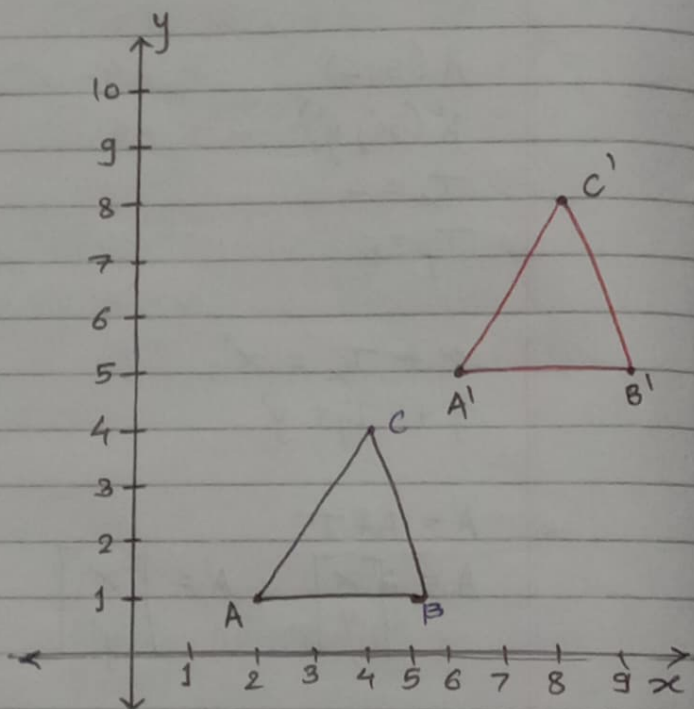 y
10
9
8
7
6
5
4
3
2
1
C'
A'
B'
C
A
B
1 2 3 4 5 6 7 8 9 x